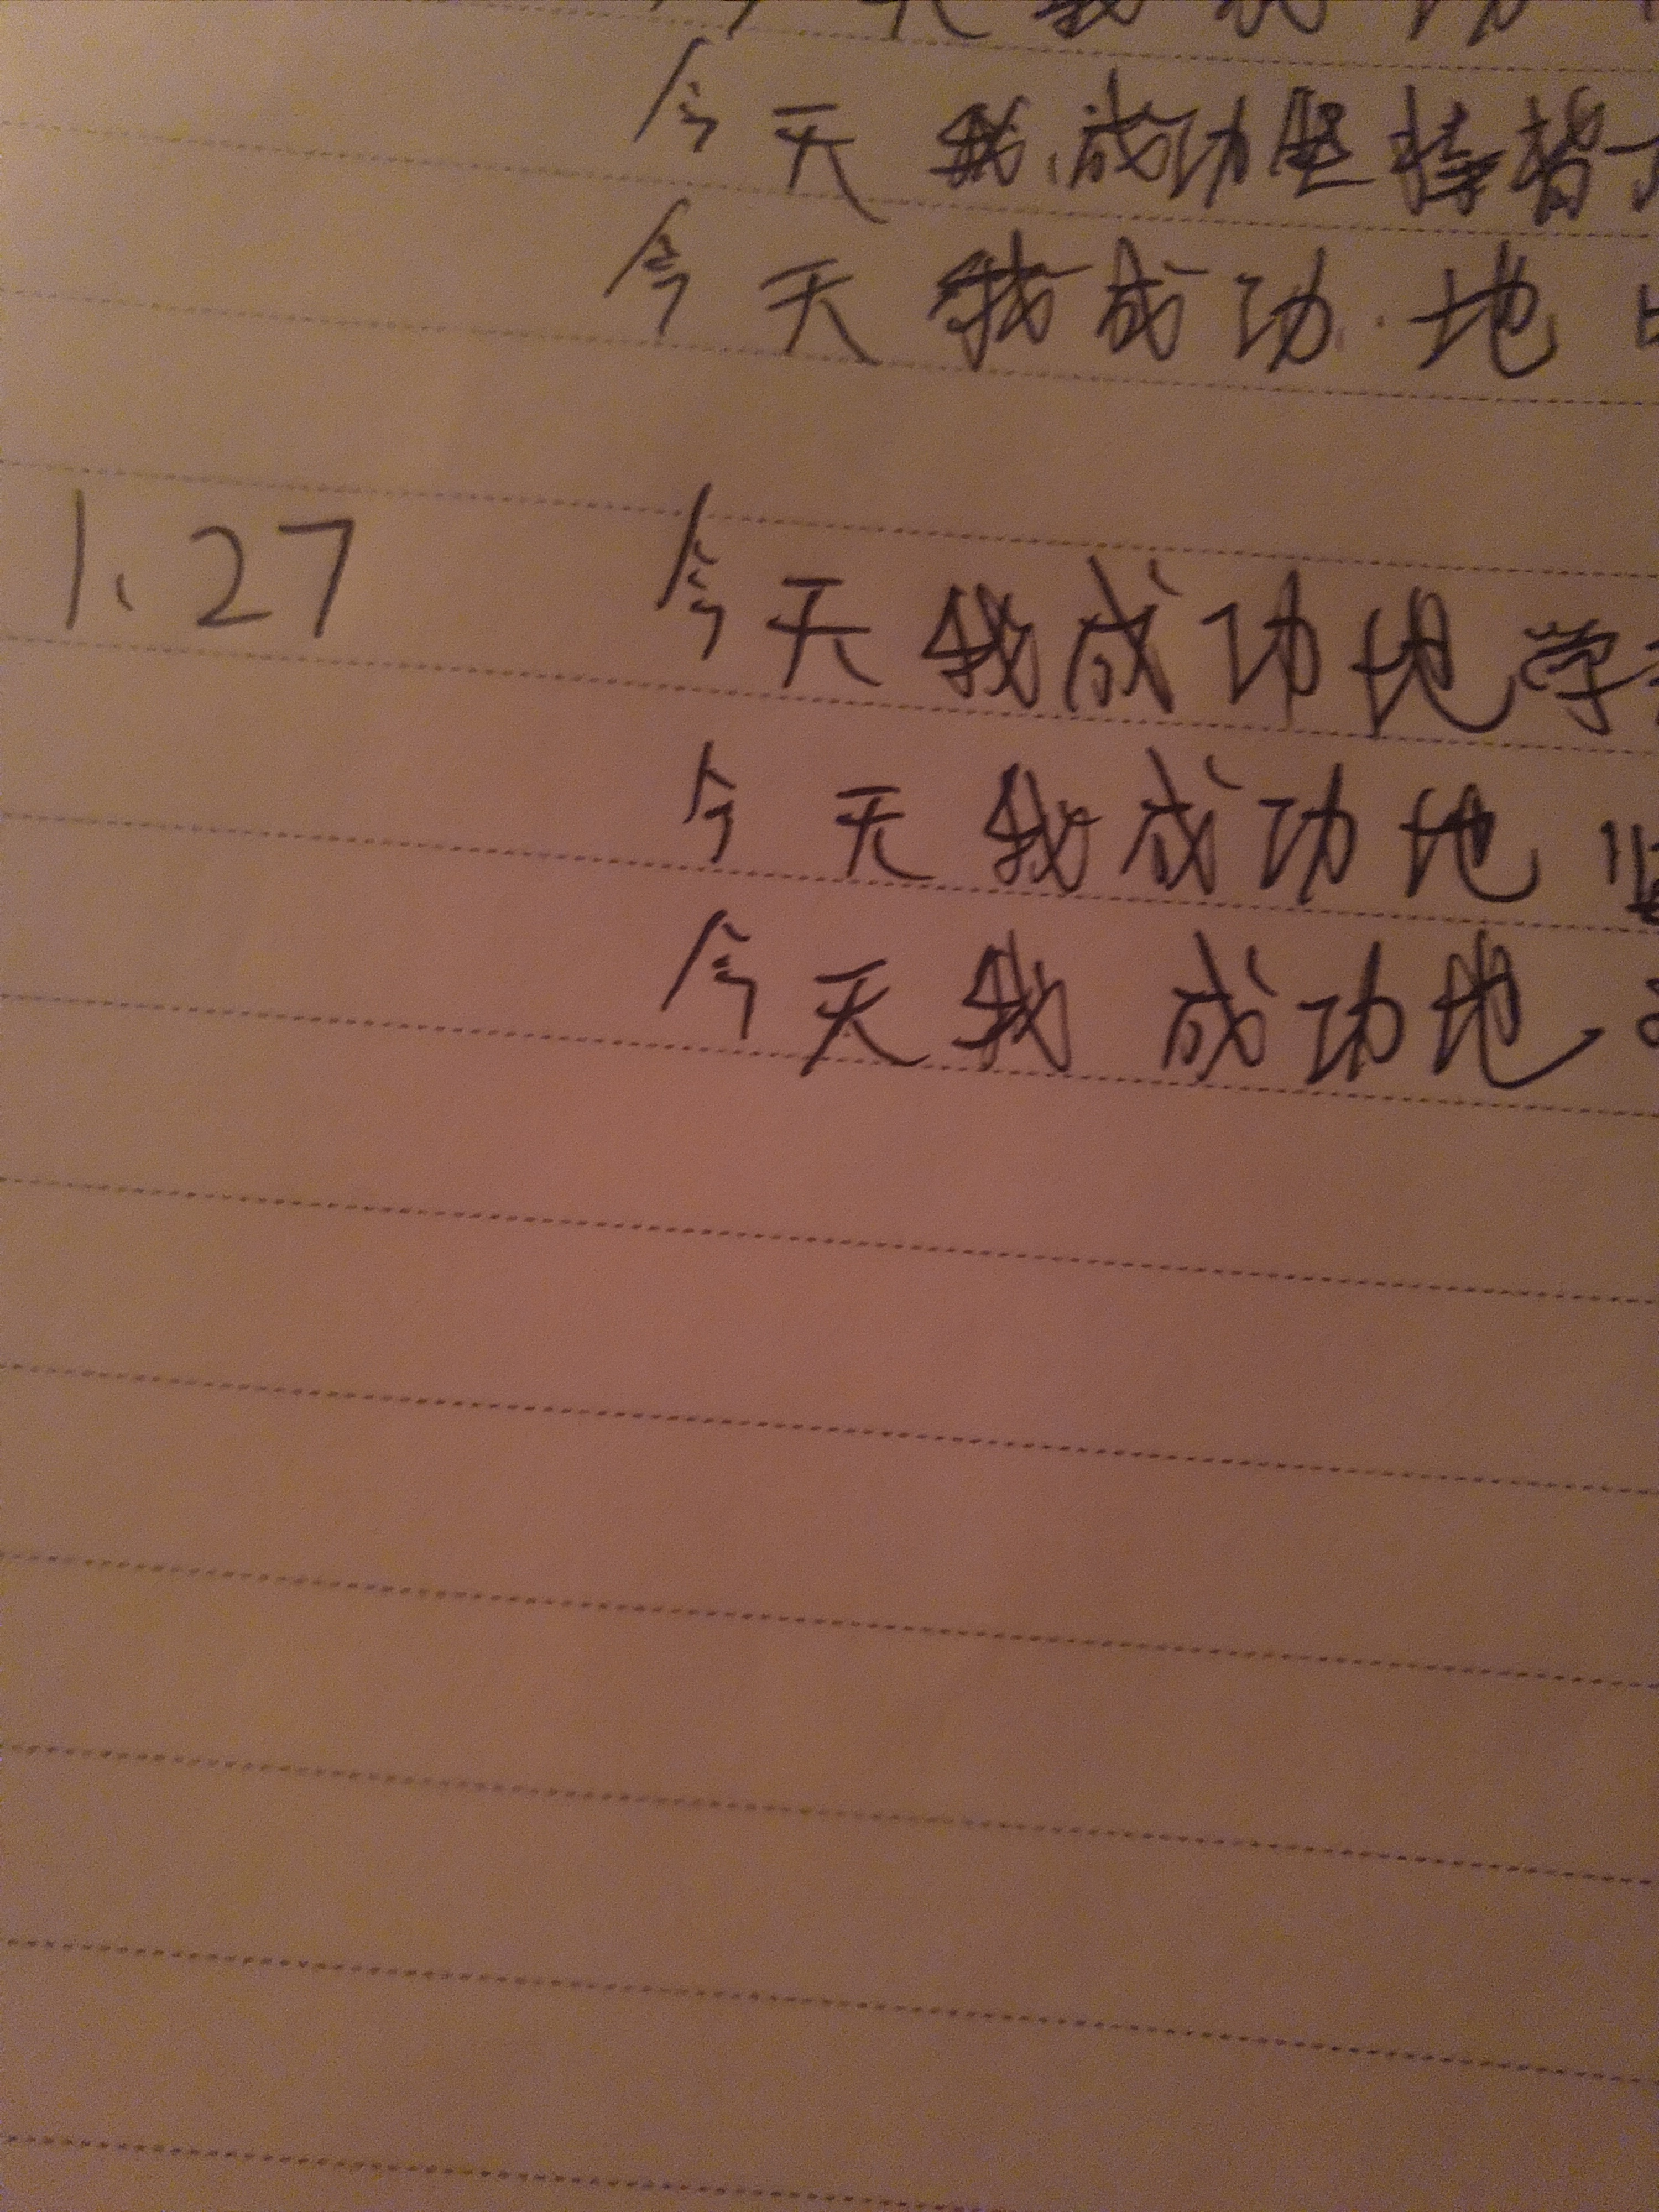 天我成功
今天我成功坚持背
今天我成功地
1、27 今天我成功地学
今天我成功地
今天我成功地